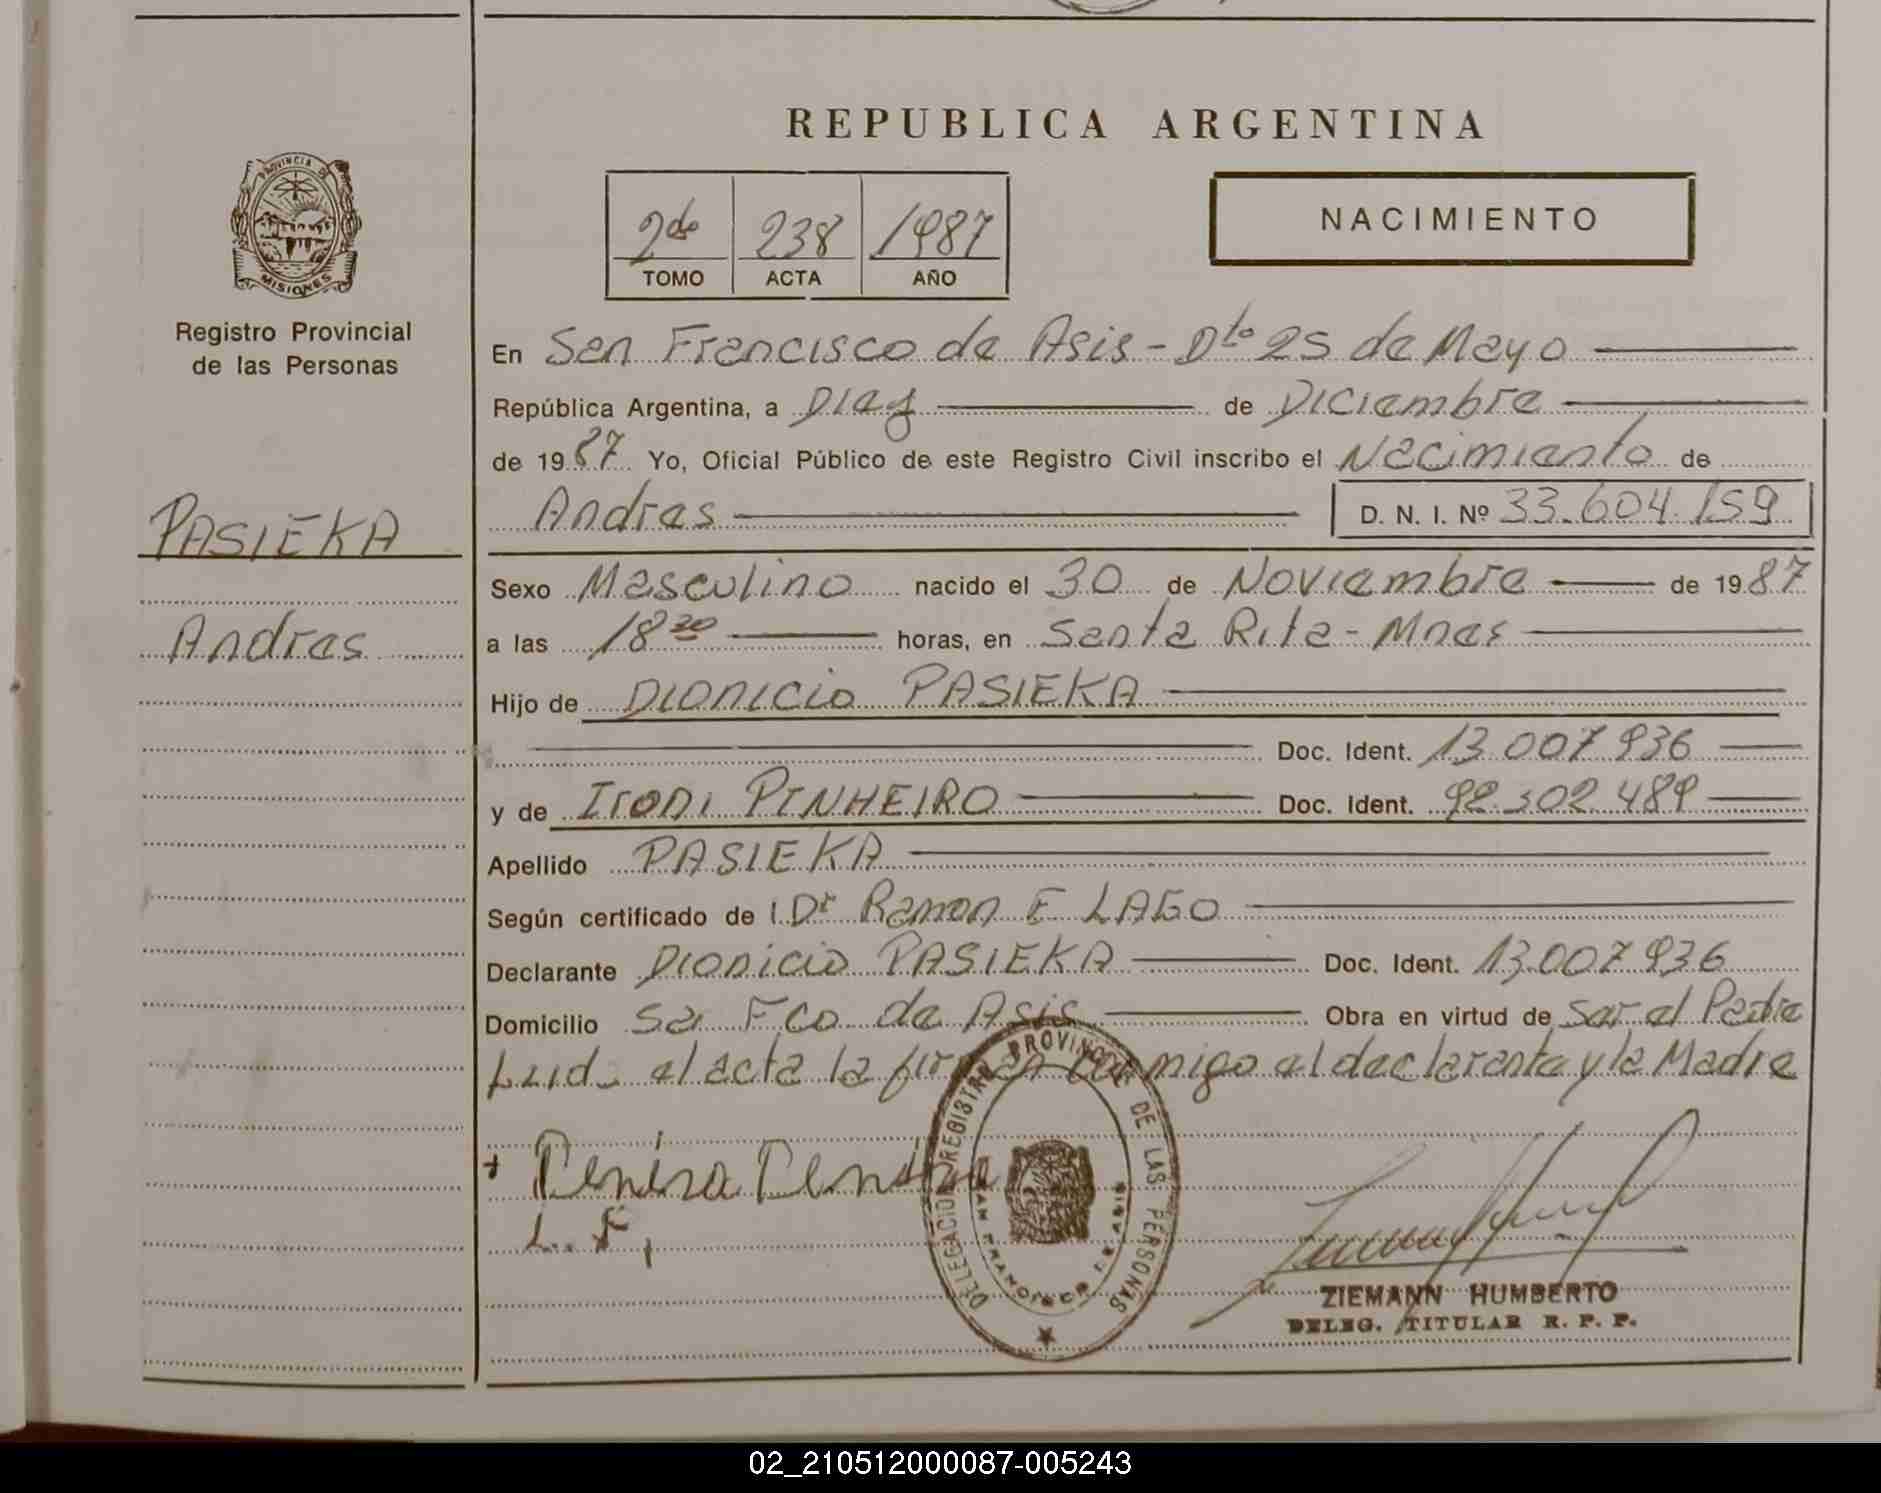 REPUBLICA ARGENTINA
PROVINCIA DE
MISIONES
Registro Provincial
de las Personas
2do 238 1987
TOMO ACTA AÑO
NACIMIENTO
En San Francisco de Asis - Dto 25 de Mayo
República Argentina, a Diez de Diciembre
de 1987 Yo, Oficial Público de este Registro Civil inscribo el Nacimiento de
Andres D. N. I. Nº 33.604.159
PASIEKA
Andres
Sexo Masculino nacido el 30 de Noviembre de 1987
a las 18 30 horas, en Santa Rita - Mnes
Hijo de Dionicio PASIEKA
Doc. Ident. 13.007.936
y de Irodi PINHEIRO Doc. Ident. 92.302.489
Apellido PASIEKA
Según certificado de Dr Ramon E LAGO
Declarante Dionicio PASIEKA Doc. Ident. 13.007.936
Domicilio Sa Fco de Asis Obra en virtud de ser el Padre
Leida el acta la firman conmigo el declarante y la Madre
DELEGACION REGISTRO PROVINCIAL DE LAS PERSONAS
SAN FRANCISCO DE ASIS
ZIEMANN HUMBERTO
DELEG. TITULAR R. P. P.
02_210512000087-005243